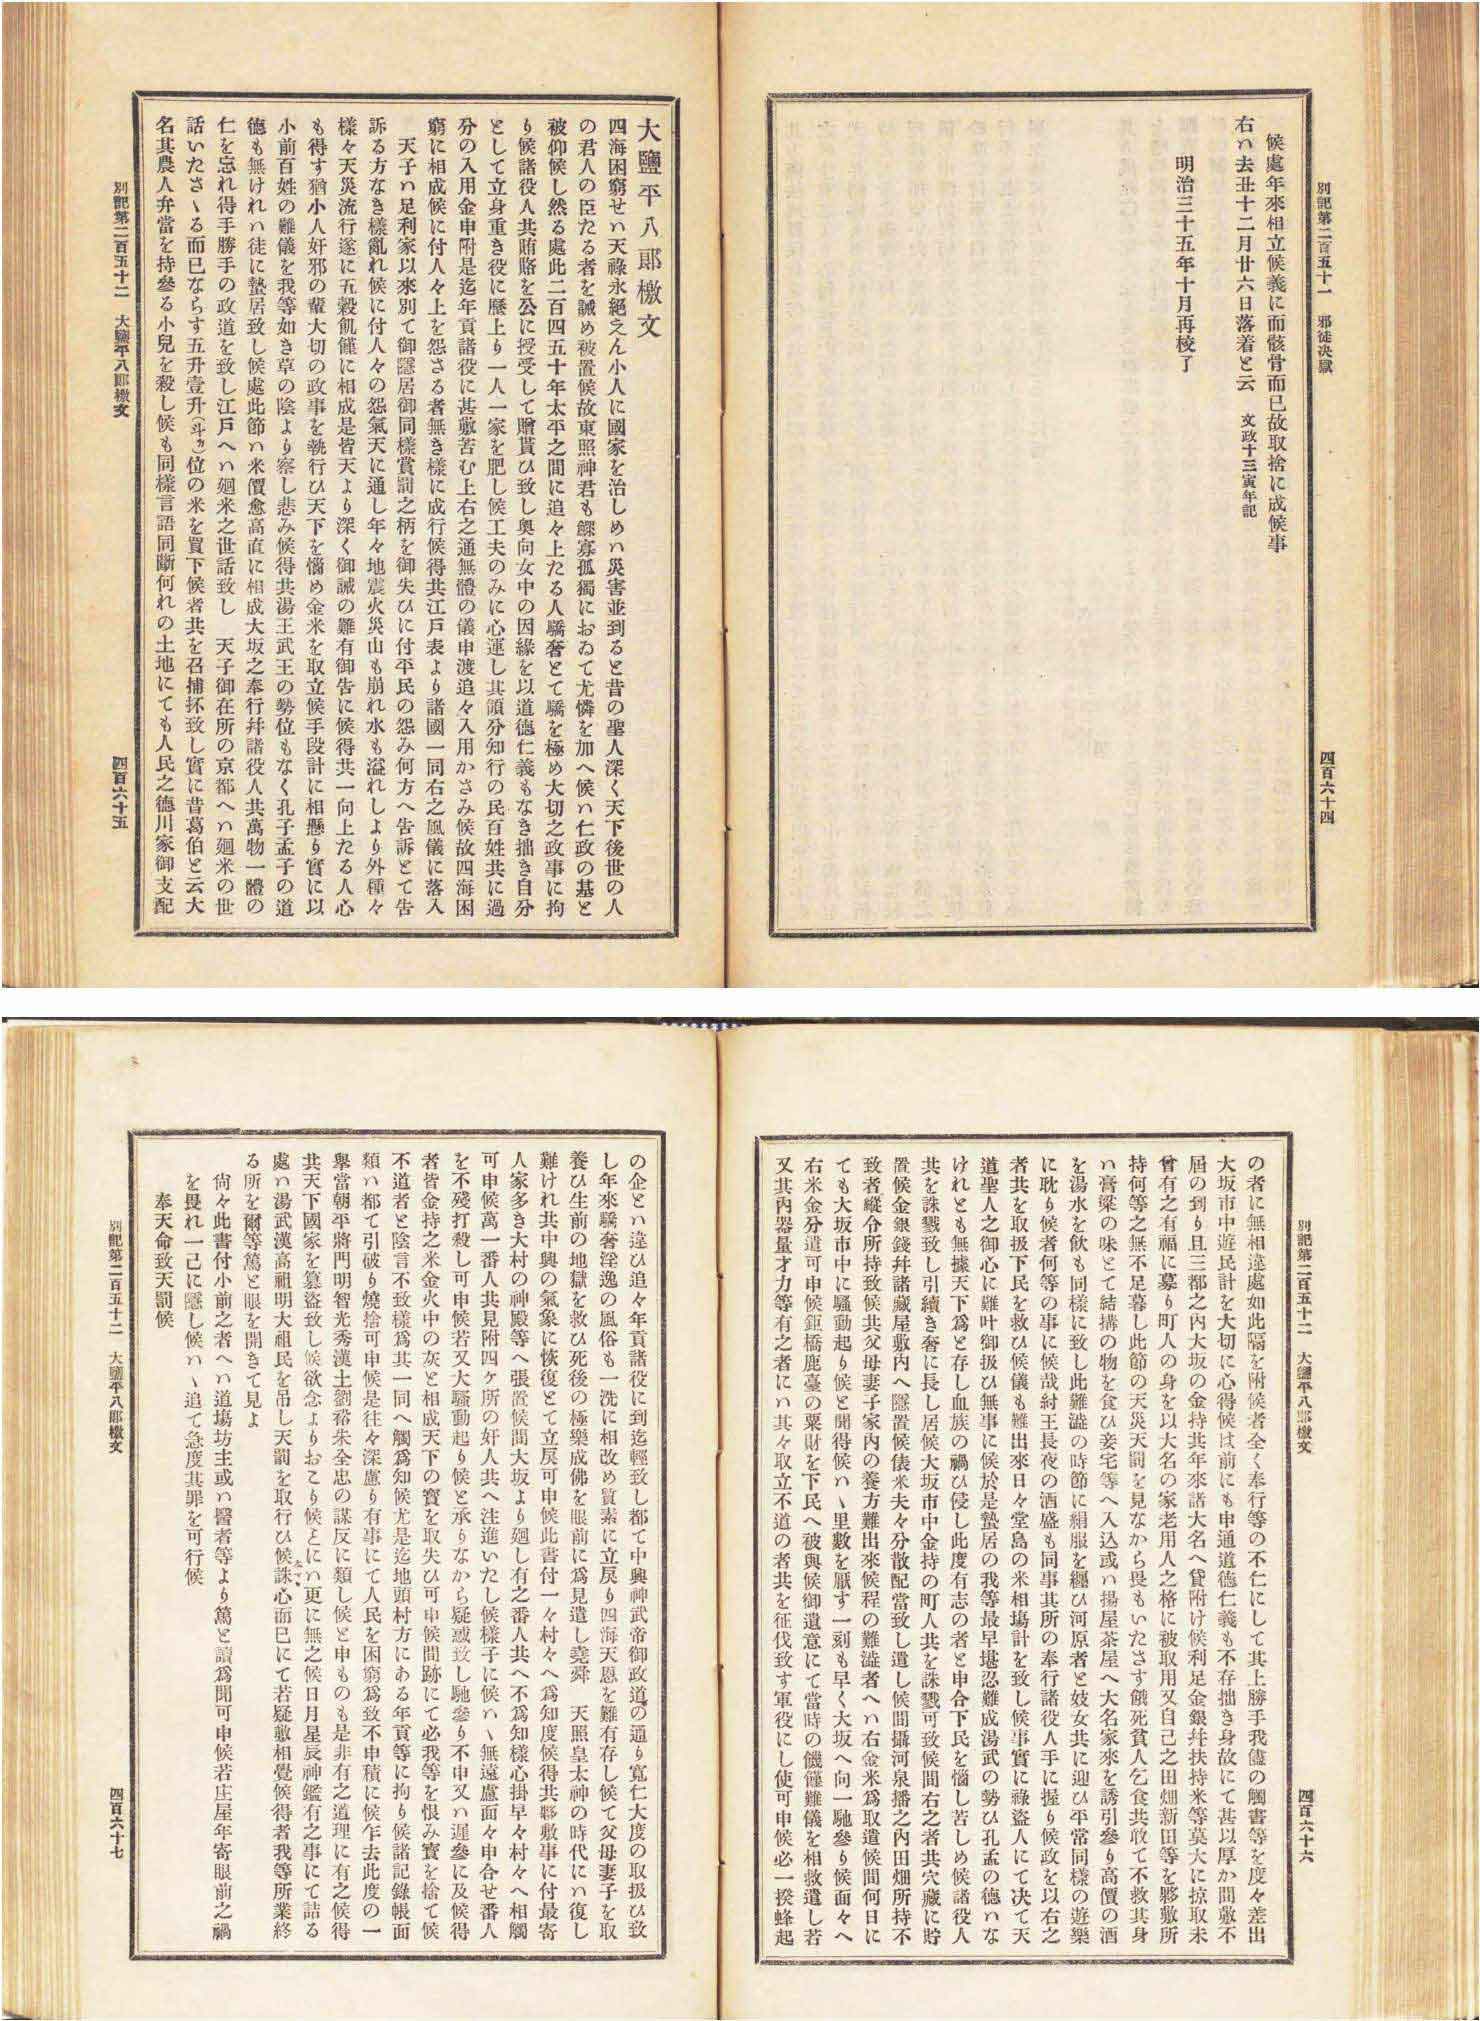 別記第二百五十一　邪徒決獄
四百六十四
候處年來相立候義に而骸骨而已故取捨に成候事
右ハ去丑十二月廿六日落着と云　文政十三寅年記
明治三十五年十月再校了
大鹽平八郎檄文
四海困窮せハ天祿永絕えん小人に國家を治しめハ災害並到ると昔の聖人深く天下後世の人
の君人の臣たる者を誡め被置候故東照神君も鰥寡孤獨におゐて尤憐を加へ候ハ仁政の基と
被仰候し然る處此二百四五十年太平之間に追々上たる人驕奢とて驕を極め大切之政事に拘
り候諸役人共賄賂を公に授受して贈貰ひ致し奧向女中の因緣を以道德仁義もなき拙き自分
として立身重き役に歷上り一人一家を肥し候工夫のみに心運し其領分知行の民百姓共に過
分の入用金申附是迄年貢諸役に甚敷苦む上右之通無體の儀申渡追々入用かさみ候故四海困
窮に相成候に付人々上を怨さる者無き樣に成行候得共江戶表より諸國一同右之風儀に落入
天子ハ足利家以來別て御隱居御同樣賞罰之柄を御失ひに付平民の怨み何方へ告訴とて告
訴る方なき樣亂れ候に付人々の怨氣天に通し年々地震火災山も崩れ水も溢れしより外種々
樣々天災流行遂に五穀飢饉に相成是皆天より深く御誡の難有御告に候得共一向上たる人心
も得す猶小人奸邪の輩大切の政事を執行ひ天下を惱め金米を取立候手段計に相懸り實に以
小前百姓の難儀を我等如き草の陰より察し悲み候得共湯王武王の勢位もなく孔子孟子の道
德も無けれハ徒に蟄居致し候處此節ハ米價愈高直に相成大坂之奉行幷諸役人共萬物一體の
仁を忘れ得手勝手の政道を致し江戶へハ廻米之世話致し　天子御在所の京都へハ廻米の世
話いたさゝる而已ならす五升壹升（斗カ）位の米を買下候者共を召捕抔致し實に昔葛伯と云大
名其農人弁當を持參る小兒を殺し候も同樣言語同斷何れの土地にても人民之德川家御支配
別記第二百五十二　大鹽平八郎檄文
四百六十五
別記第二百五十二　大鹽平八郎檄文
四百六十六
の者に無相違處如此隔を附候者全く奉行等の不仁にして其上勝手我儘の觸書等を度々差出
大坂市中遊民計を大切に心得候は前にも申通道德仁義も不存拙き身故にて甚以厚か間敷不
屆の到り且三都之內大坂の金持共年來諸大名へ貸附け候利足金銀幷扶持米等莫大に掠取未
曾有之有福に暮り町人の身を以大名の家老用人之格に被取用又自己之田畑新田等を夥敷所
持何等之無不足暮し此節の天災天罰を見なから畏もいたさす餓死貧人乞食共敢て不救其身
ハ膏粱の味とて結搆の物を食ひ妾宅等へ入込或ハ揚屋茶屋へ大名家來を誘引參り高價の酒
を湯水を飮も同樣に致し此難澁の時節に絹服を纒ひ河原者と妓女共に迎ひ平常同樣の遊樂
に耽り候者何等の事に候哉紂王長夜の酒盛も同事其所の奉行諸役人手に握り候政を以右之
者共を取扱下民を救ひ候儀も難出來日々堂島の米相塲計を致し候事實に祿盜人にて決て天
道聖人之御心に難叶御扱ひ無事に候於是蟄居の我等最早堪忍難成湯武の勢ひ孔孟の德ハな
けれとも無據天下爲と存し血族の禍ひ侵し此度有志の者と申合下民を惱し苦しめ候諸役人
共を誅戮致し引續き奢に長し居候大坂市中金持の町人共を誅戮可致候間右之者共穴藏に貯
置候金銀錢幷諸藏屋敷內へ隱置候俵米夫々分散配當致し遣し候間攝河泉播之內田畑所持不
致者縱令所持致候共父母妻子家內の養方難出來候程の難澁者へハ右金米爲取遣候間何日に
ても大坂市中に騷動起り候と聞得候ハヽ里數を厭す一刻も早く大坂へ向一馳參り候面々へ
右米金分遣可申候鉅橋鹿臺の粟財を下民へ被與候御遺意にて當時の饑饉難儀を相救遣し若
又其內器量才力等有之者にハ其々取立不道の者共を征伐致す軍役にし使可申候必一揆蜂起
の企とハ違ひ追々年貢諸役に到迄輕致し都て中興神武帝御政道の通り寬仁大度の取扱ひ致
し年來驕奢淫逸の風俗も一洗に相改め質素に立戾り四海天恩を難有存し候て父母妻子を取
養ひ生前の地獄を救ひ死後の極樂成佛を眼前に爲見遣し堯舜　天照皇太神の時代にハ復し
難けれ共中興の氣象に恢復とて立戾可申候此書付一々村々へ爲知度候得共夥敷事に付最寄
人家多き大村の神殿等へ張置候間大坂より廻し有之番人共へ不爲知樣心掛早々村々へ相觸
可申候萬一番人共見附四ケ所の奸人共へ注進いたし候樣子に候ハヽ無遠慮面々申合せ番人
を不殘打殺し可申候若又大騷動起り候と承りなから疑惑致し馳參り不申又ハ遲參に及候得
者皆金持之米金火中の灰と相成天下の寶を取失ひ可申候間跡にて必我等を恨み寶を捨て候
不道者と陰言不致樣爲其一同へ觸爲知候尤是迄地頭村方にある年貢等に拘り候諸記錄帳面
類ハ都て引破り燒捨可申候是往々深慮り有事にて人民を困窮爲致不申積に候乍去此度の一
擧當朝平將門明智光秀漢土劉裕朱全忠の謀反に類し候と申ものも是非有之道理に有之候得
共天下國家を簒盜致し候欲念よりおこり候とにハ更に無之候日月星辰神鑑有之事にて詰る
處ハ湯武漢高祖明大祖民を吊し天罰を取行ひ候誅心而已にて若疑敷相覺候得者我等所業終
る所を爾等篤と眼を開きて見よ
尙々此書付小前之者へハ道塲坊主或ハ醫者等より篤と讀爲聞可申候若庄屋年寄眼前之禍
を畏れ一己に隱し候ハヽ追て急度其罪を可行候
奉天命致天罰候
別記第二百五十二　大鹽平八郎檄文
四百六十七